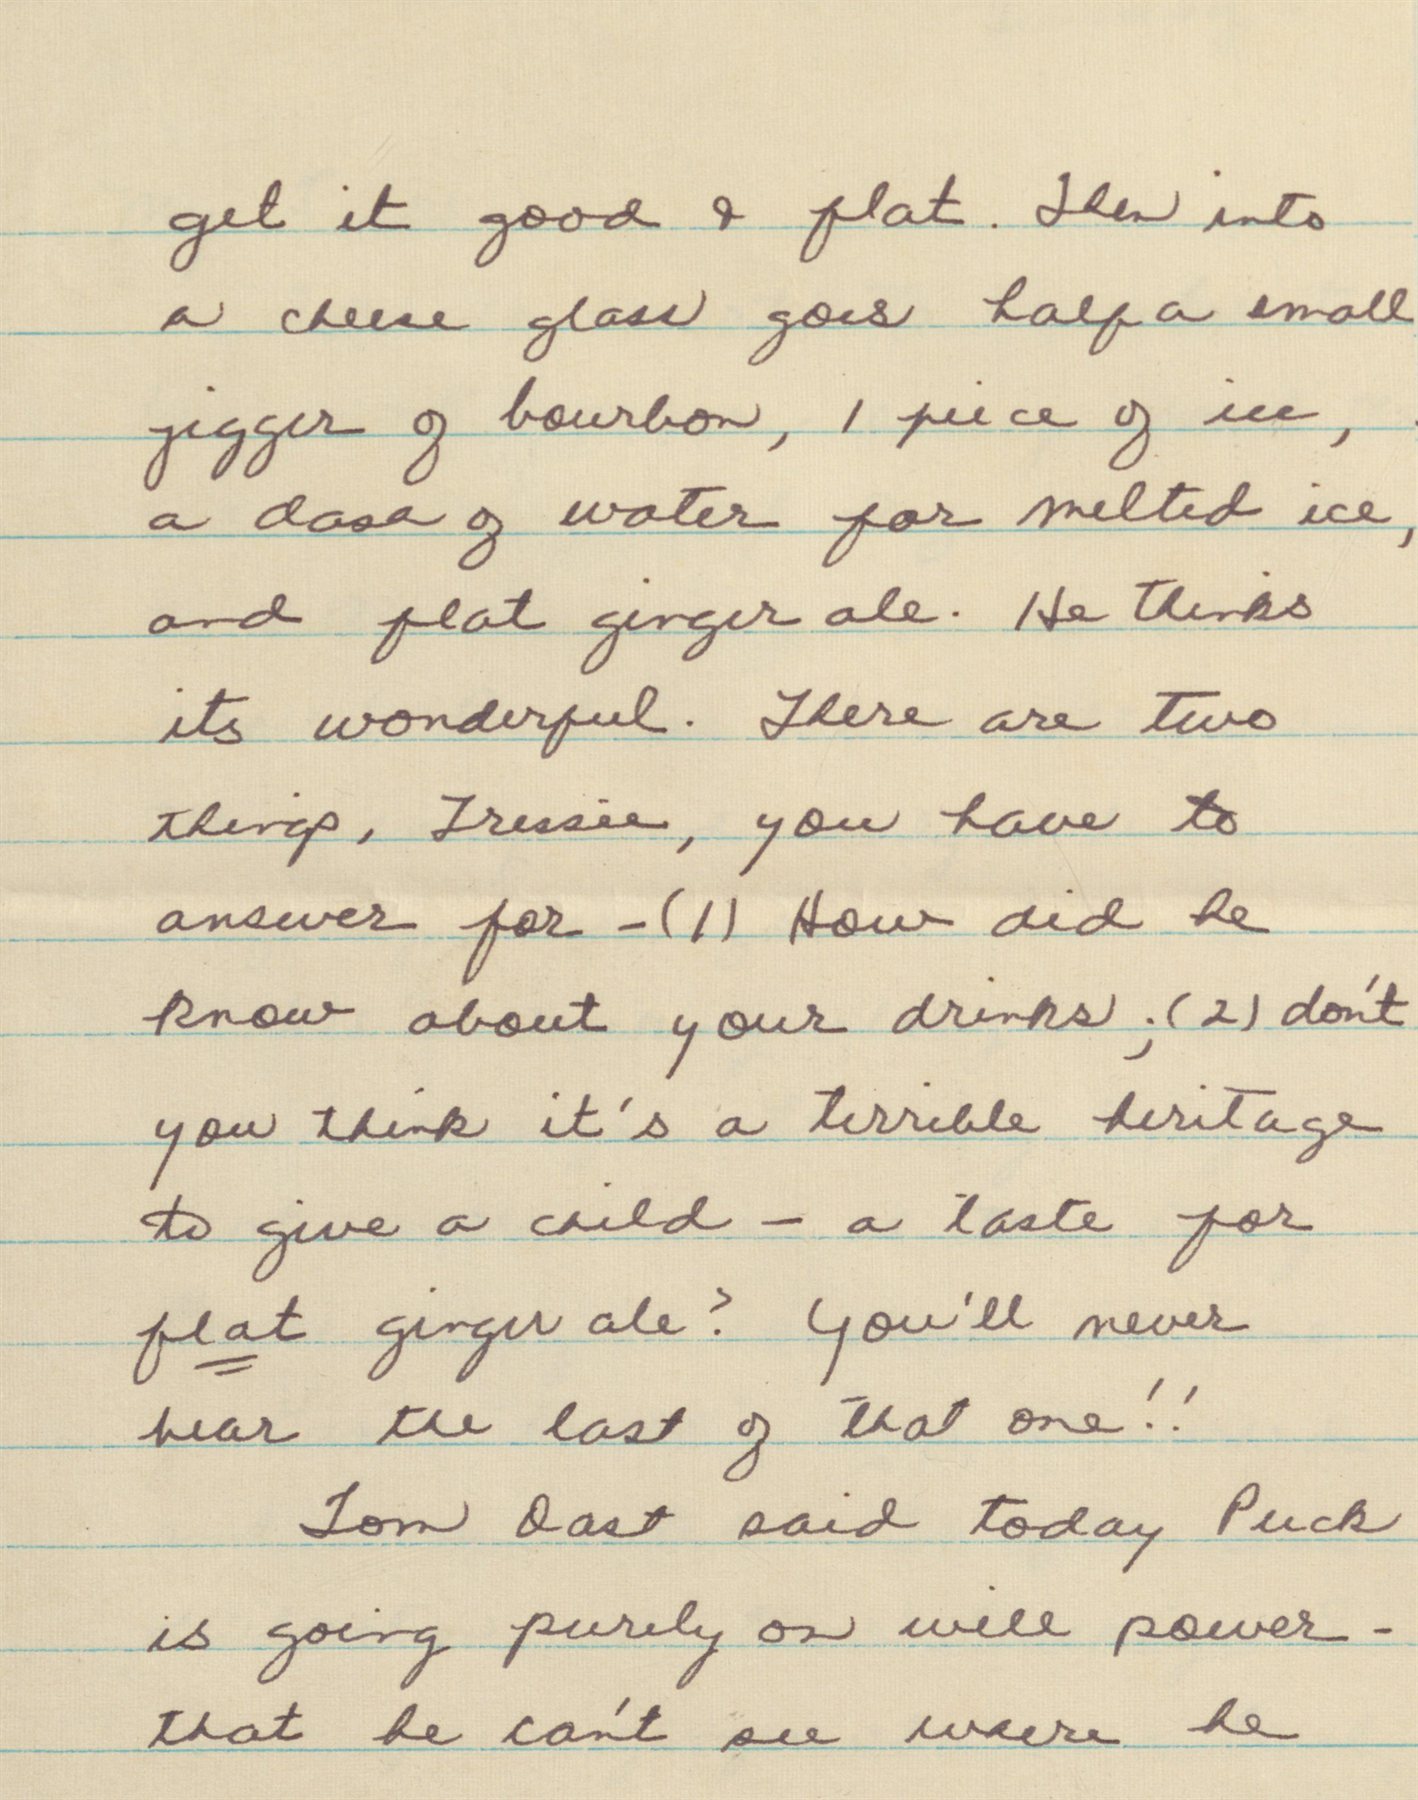 get it good & flat. Then into
a cheese glass goes half a small
jigger of bourbon, 1 piece of ice,
a dash of water for melted ice,
and flat ginger ale. He thinks
its wonderful. There are two
things, Tressie, you have to
answer for - (1) How did he
know about your drinks; (2) don't
you think it's a terrible heritage
to give a child - a taste for
flat ginger ale? You'll never
hear the last of that one!!
Tom Dast said today Puck
is going purely on will power -
that he can't see where he